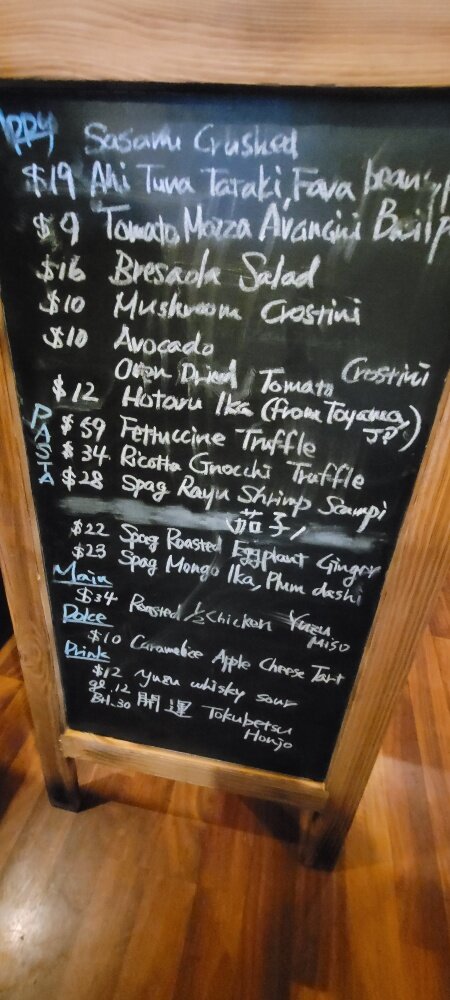 Sasami Crushed
$19 Ahi Tuna Tataki, Fava bean,
$9 Tomato Mozza Arancini Basil
$16 Bresaola Salad
$10 Mushroom Crostini
$10 Avocado
Oven Dried Tomato Crostini
$12 Hotaru Ika (from Toyama, JP)
PASTA
$59 Fettuccine Truffle
$34 Ricotta Gnocchi Truffle
$28 Spag Rayu Shrimp Scampi
茄子,
$22 Spag Roasted Eggplant Ginger
$23 Spag Mongo Ika, Plum dashi
Main
$34 Roasted 1/2 Chicken Yuzu Miso
Dolce
$10 Caramelize Apple Cheese Tart
Drink
$12 yuzu whisky sour
gl. 12 開運 Tokubetsu
Btl. 30 Honjo